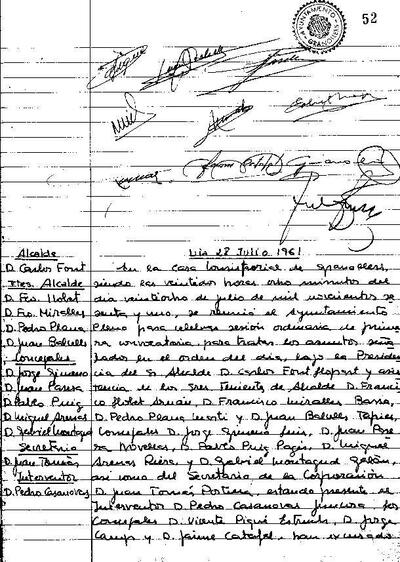 AYUNTAMIENTO
52
Alcalde
D. Carlos Font
Ttes. Alcalde
D. Fco. Llobet
D. Fco. Miralles
D. Pedro Plana
D. Juan Balcells
Concejales
D. Jorge Gimeno
D. Juan Parera
D. Pablo Puig
D. Miguel Arenas
D. Gabriel Montagud
Secretario
D. Juan Tomás
Interventor
D. Pedro Casanovas
Día 28 Julio 1961
En la Casa Consistorial de Granollers,
siendo las veintidos horas ocho minutos del
día veintiocho de julio de mil novecientos se
senta y uno, se reunió el Ayuntamiento
Pleno para celebrar sesión ordinaria de prime
ra convocatoria para tratar los asuntos seña
lados en el orden del día, bajo la Presiden
cia del Sr. Alcalde D. Carlos Font Llopart y asis
tencia de los Sres. Teniente de Alcalde D. Francis
co Llobet Arnán, D. Francisco Miralles Barra,
D. Pedro Plana Monti y D. Juan Balcells Tapias,
Concejales D. Jorge Gimeno Luis, D. Juan Pare
ra Novellas, D. Pablo Puig Pagés, D. Miguel
Arenas Riera y D. Gabriel Montagud Galbán,
así como del Secretario de la Corporación
D. Juan Tomás Portiera, estando presente el
Interventor D. Pedro Casanovas Los
Concejales D. Vicente Piqué Estruch, D. Jorge
Camp y D. Jaime Catafal, han excusado